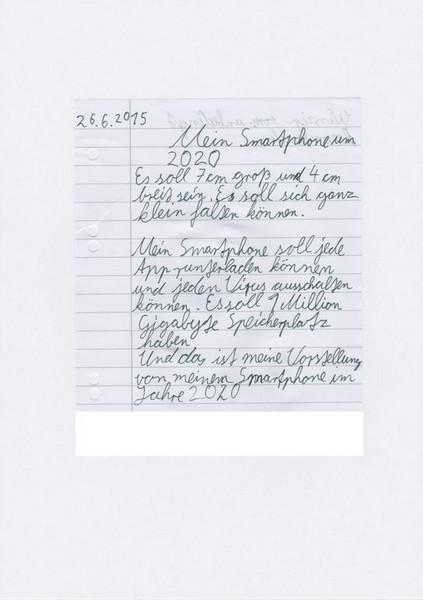 26.6.2015
Mein Smartphone um
2020
Es soll 7cm groß und 4 cm
breit sein. Es soll sich ganz
klein falten können.
Mein Smartphone soll jede
App runterladen können
und jeden Virus ausschalten
können. Es soll 1 Million
Gigabyte Speicherplatz
haben
Und das ist meine Vorstellung
von meinem Smartphone im
Jahre 2020